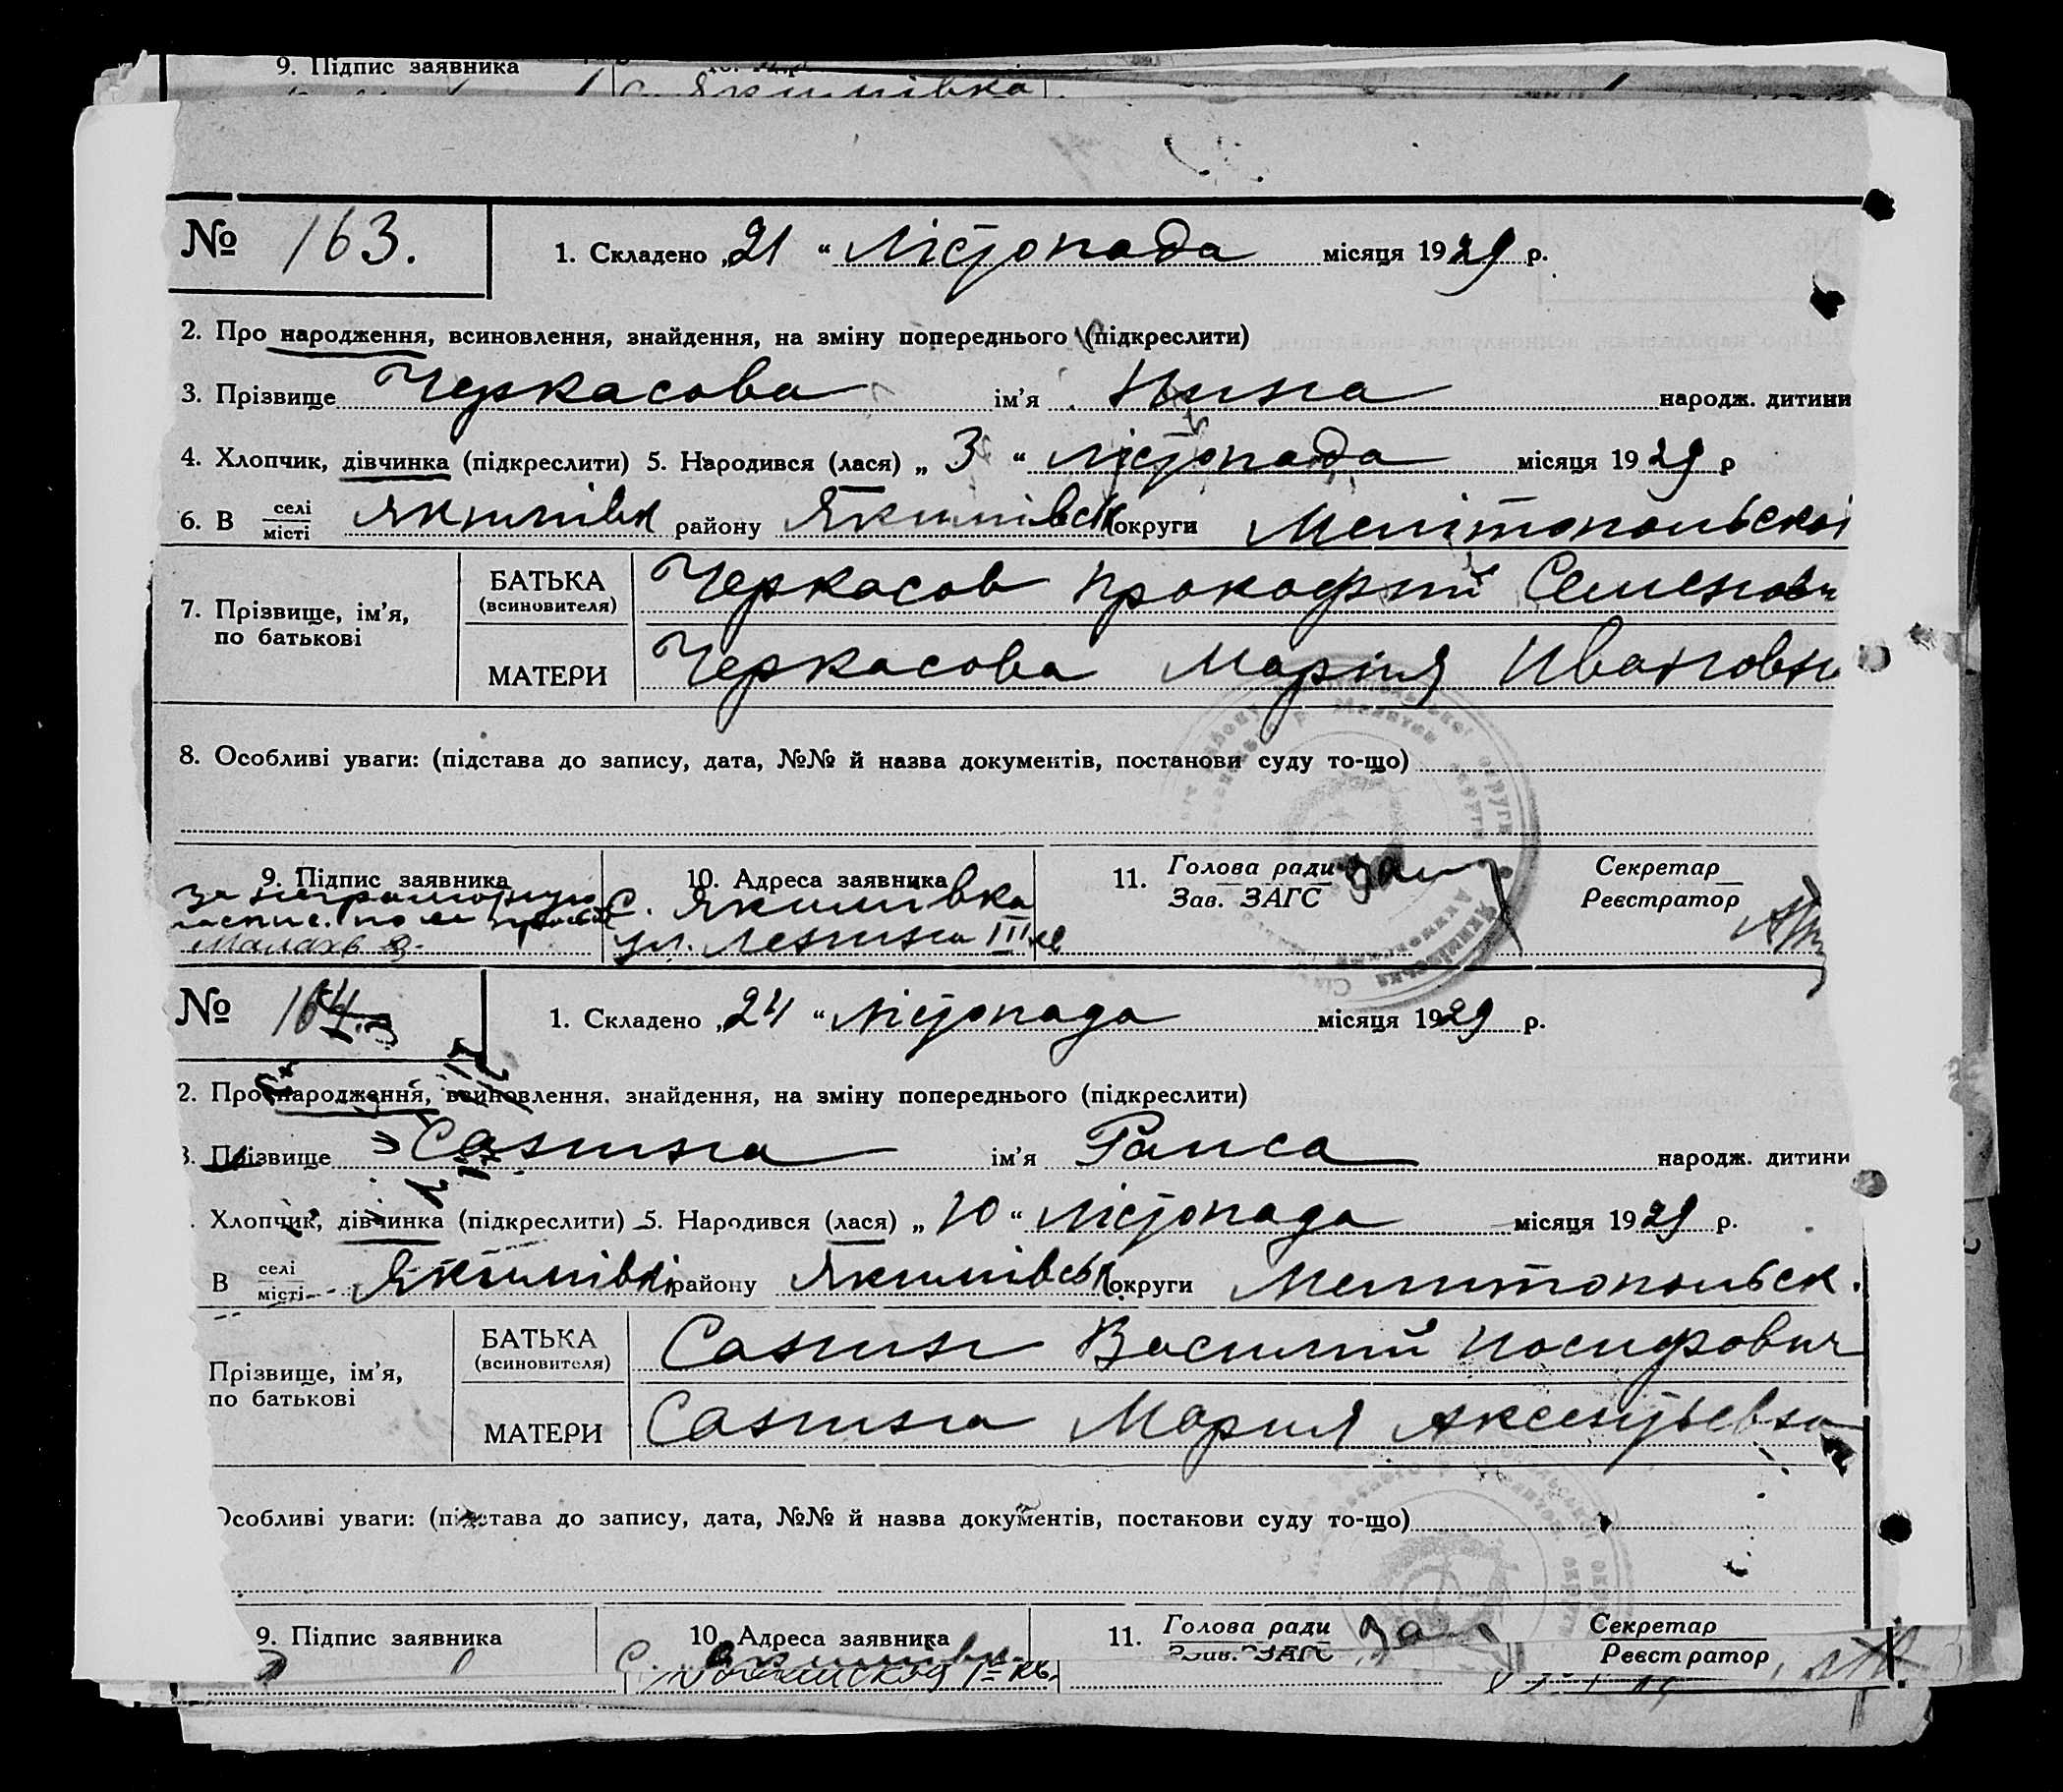 9. Підпис заявника
с. Якимівка
№ 163. 1. Складено „21“ Лістопада місяця 1929 р.
2. Про народження, всиновлення, знайдення, на зміну попереднього (підкреслити)
3. Прізвище Черкасова ім'я Нина народж. дитини
4. Хлопчик, дівчинка (підкреслити) 5. Народився (лася) „3“ лістопада місяця 1929 р
6. В селі/місті Якимівк району Якимівськ округи Мелітопольскоі
7. Прізвище, ім'я, по батькові
БАТЬКА (всиновителя) Черкасов Прокофий Семенович
МАТЕРИ Черкасова Мария Ивановн
8. Особливі уваги: (підстава до запису, дата, №№ й назва документів, постанови суду то-що)
9. Підпис заявника
за неграмотную
роспис. по ея прозьб
10. Адреса заявника
с. Якимівка
ул. Ленина III кв
11. Голова ради
Зав. ЗАГС
Секретар
Реєстратор
№ 164. 1. Складено „24“ Лістопада місяця 1929 р.
2. Про народження, всиновлення, знайдення, на зміну попереднього (підкреслити)
3. Прізвище Санина ім'я Раиса народж. дитини
. Хлопчик, дівчинка (підкреслити) 5. Народився (лася) „10“ Лістопада місяця 1929 р.
В селі/місті Якимівкі району Якимівськ округи Мелитопольск.
Прізвище, ім'я, по батькові
БАТЬКА (всиновителя) Санин Василий Иосифович
МАТЕРИ Санина Мария Аксентьевна
Особливі уваги: (підстава до запису, дата, №№ й назва документів, постанови суду то-що)
9. Підпис заявника
10. Адреса заявника
с. Якимівк
I кв.
11. Голова ради
Зав. ЗАГС
Секретар
Реєстратор